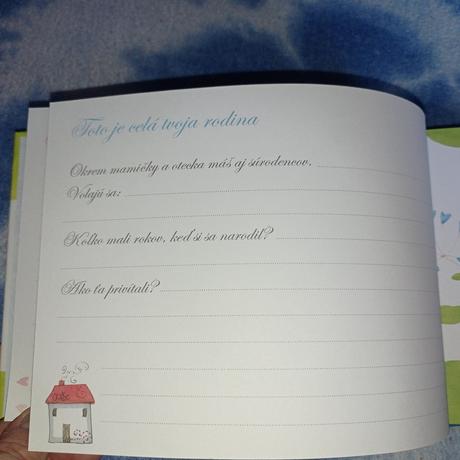 Toto je celá tvoja rodina
Okrem mamičky a otecka máš aj súrodencov,
Volajú sa:
Koľko mali rokov, keď si sa narodil?
Ako ťa privítali?